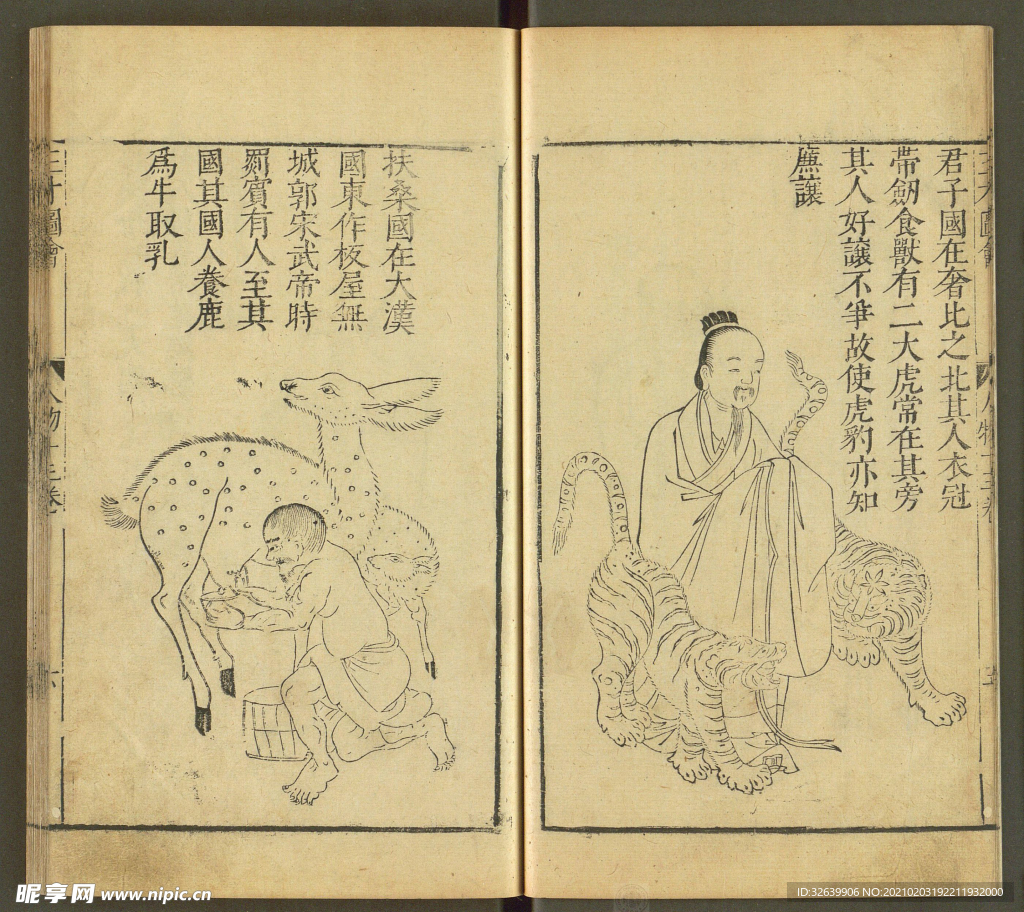 君子國在奢比之北其人衣冠
帶劒食獸有二大虎常在其旁
其人好讓不爭故使虎豹亦知
廉讓
扶桑國在大漢
國東作板屋無
城郭宋武帝時
罽賓有人至其
國其國人養鹿
爲牛取乳
三才圖會
人物十三卷
昵享网 www.nipic.cn
ID:32639906 NO:20210203192211932000